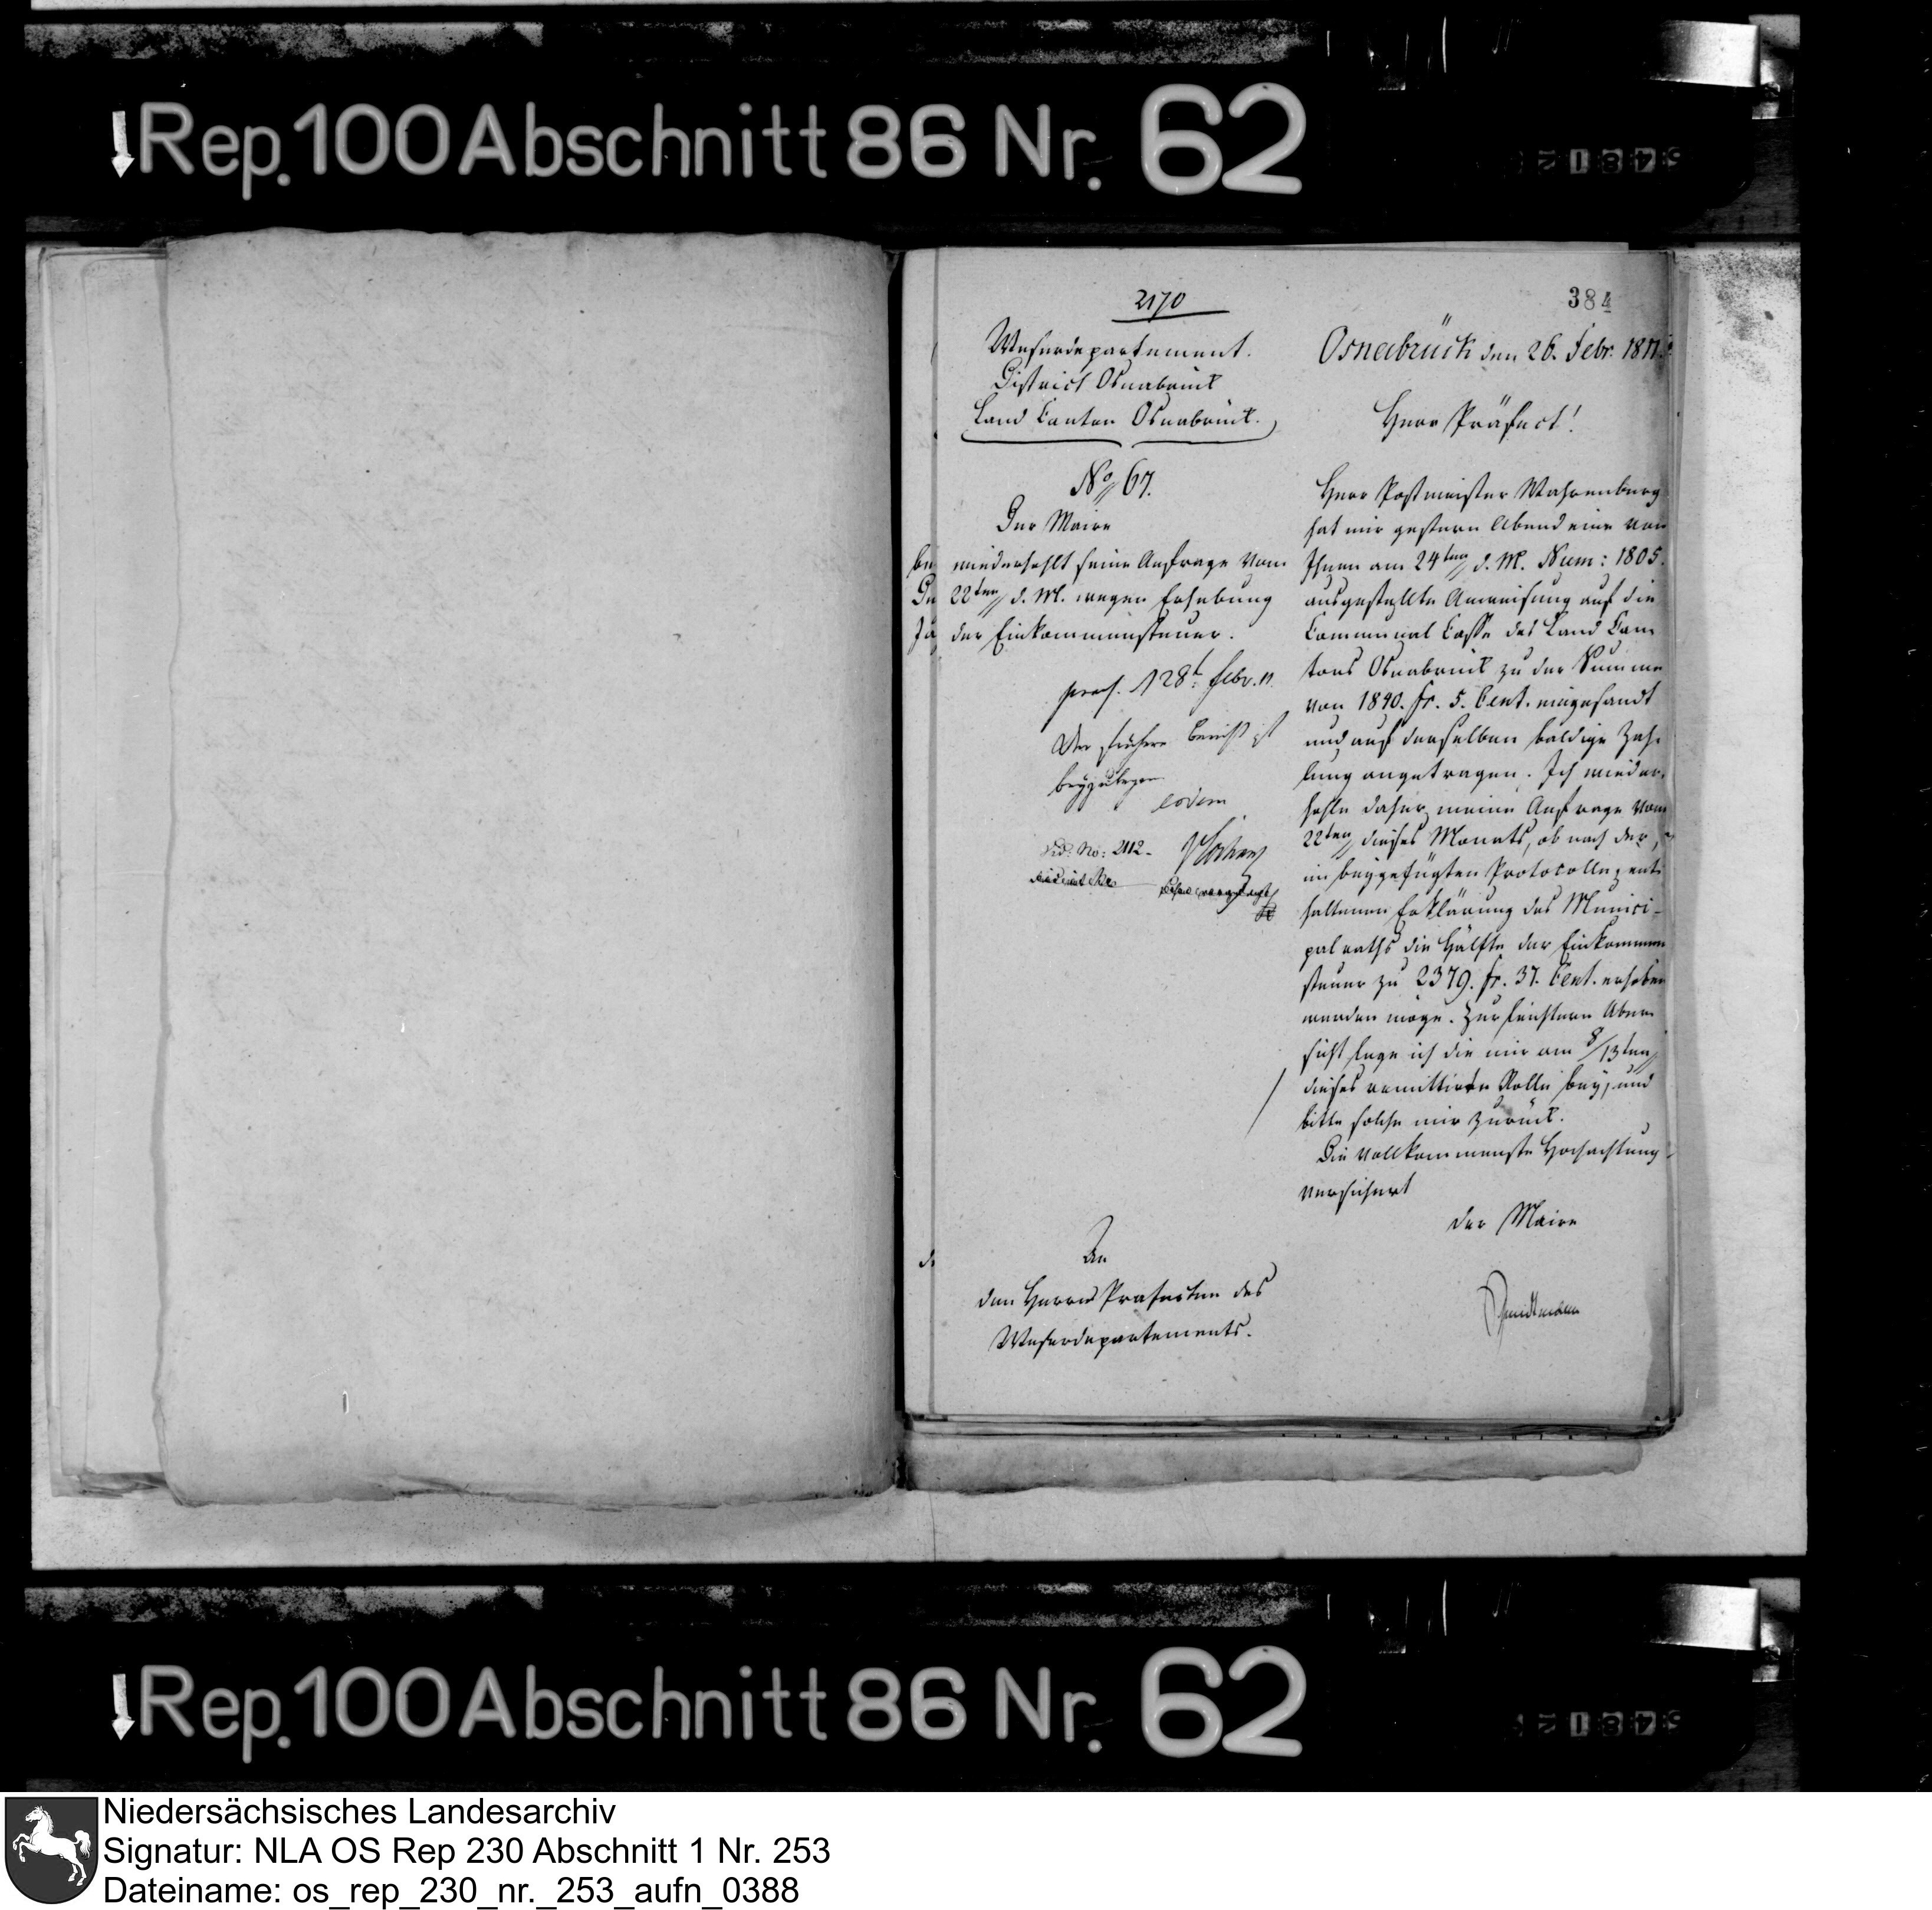 Rep. 100 Abschnitt 86 Nr. 62
384
2170
Weserdepartement.
District Osnabrück
Land Canton Osnabrück.
No 67.
Der Maire
wiederhohlt seine Anfrage vom
22ten d. M. wegen Erhebung
der Einkommensteuer.
praes. 28t Febr. 11.
Der frühere Bericht ist
beyzulegen
eodem
No: 2112.
An
den Herrn Präfecten des
Weserdepartements.
Osnabrück den 26. Febr. 1811.
Herr Präfect!
Herr Postmeister Wahrenburg
hat mir gestern Abend eine von
Ihnen am 24ten d. M. Num: 1805.
ausgestellte Anweisung auf die
Communal Casse des Land Can
tons Osnabrück zu der Summe
von 1890. fr. 5. Cent. eingesandt
und auf derselben baldige Zah-
lung angetragen. Ich wieder-
hohle daher meine Anfrage vom
22ten dieses Monats, ob nach der,
im beygefügten Protocolle ent
haltenen Erklärung des Munici-
palraths die Hälfte der Einkommen
steuer zu 2379. fr. 37. Cent. erhoben
werden möge. Zur leichtern Über
sicht lege ich die mir am 8/13ten
dieses remittirte Rolle bey, und
bitte solche mir zurück.
Die vollkommenste Hochachtung
versichert
der Maire
Rep. 100 Abschnitt 86 Nr. 62
Niedersächsisches Landesarchiv
Signatur: NLA OS Rep 230 Abschnitt 1 Nr. 253
Dateiname: os_rep_230_nr._253_aufn_0388